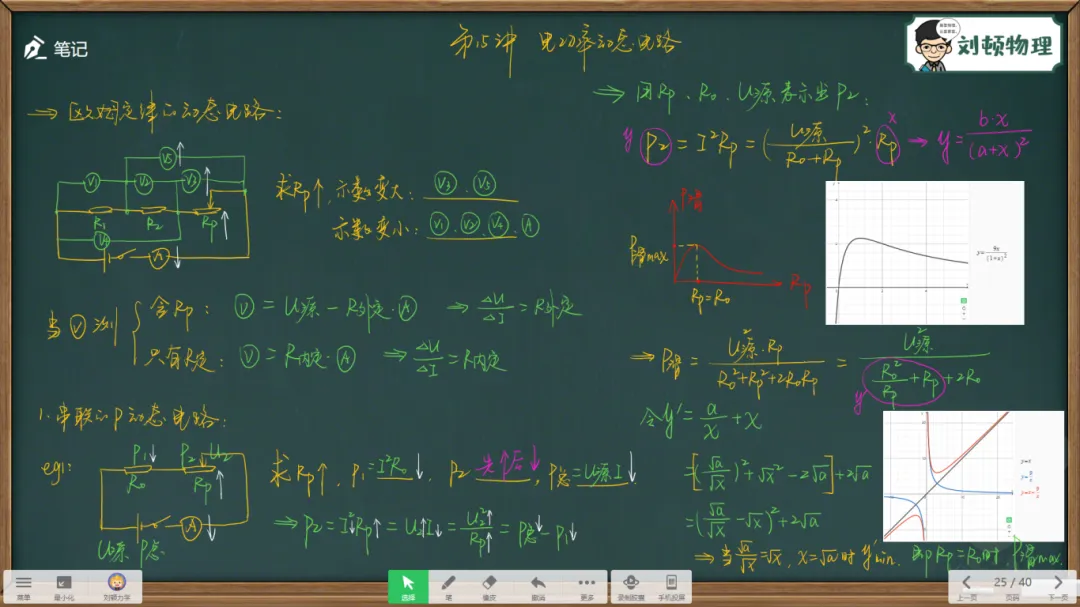 笔记
第15讲 电功率动态电路
刘顿物理
⇒ 欧姆定律的动态电路:
V5
V1 V2 V3
R1 R2 Rp
V4
A
求Rp↑, 示数变大: V3 、 V5
示数变小: V1、V2、V4、A
当V测
含Rp: V = U源 - R外定·A ⇒ ΔU/ΔI = R外定
只有R定: V = R内定·A ⇒ ΔU/ΔI = R内定
1.串联的P动态电路:
eg1:
P1↓ P2 U2
R0 Rp
A
U源 P总
求Rp↑, P1=I²R0↓, P2 先↑后↓, P总=U源I↓
⇒ P2=I²↓Rp↑=U2↑I↓=U2²↑/Rp↑=P总↓-P1↓
⇒ 用Rp、R0、U源表示出P2:
y P2 = I²Rp = (U源/(R0+Rp))²·Rp x → y = b·x/(a+x)²
P滑
P滑max
Rp=R0
Rp
y=9x/(1+x)²
⇒ P滑 = U源²·Rp/(R0²+Rp²+2R0Rp) = U源²/(R0²/Rp+Rp+2R0)
y'
令y'=a/x+x
=[(√a/√x)²+√x²-2√a]+2√a
=(√a/√x-√x)²+2√a
⇒ 当√a/√x=√x, x=√a时 y'min. 即Rp=R0时, P滑max
y=x
菜单 最小化 刘顿力学 选择 笔 橡皮 撤消 更多 录制胶囊 手机投屏 上一页 25 / 40 页码 下一页